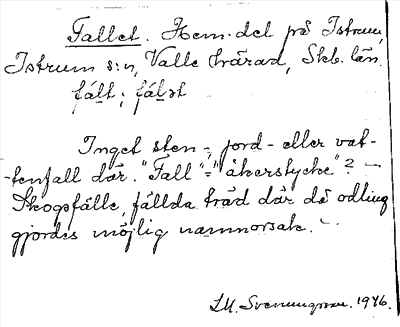 Fallet. Hem.del på Istrum,
Istrum s:n, Valle härad, Skb. län.
fál̄t; fál̄ət
Inget sten-, jord- eller vat-
tenfall där. "Fall" = "åkerstycke"? -
Skogsfälle, fällda träd där då odling
gjordes möjlig namnorsak. -
I.M. Svenungsson. 1946.